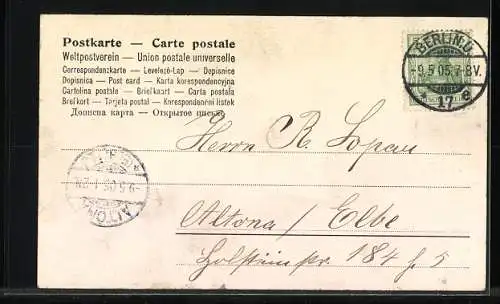 Postkarte — Carte postale
Weltpostverein — Union postale universelle
Correspondenzkarte — Levelező-Lap — Dopisnice
Dopisnica — Post card — Karta korespondencyjna
Cartolina postale — Briefkaart — Carta postala
Brefkort — Tarjeta postal — Korespondenční lístek
Дописна карта — Открытое письмо
BERLIN,O.
-9.5.05.7-8V.
17 e
Herrn R. Lopau
Altona / Elbe
Holsteinstr. 184 f. 5
ALTONA
9.5.05